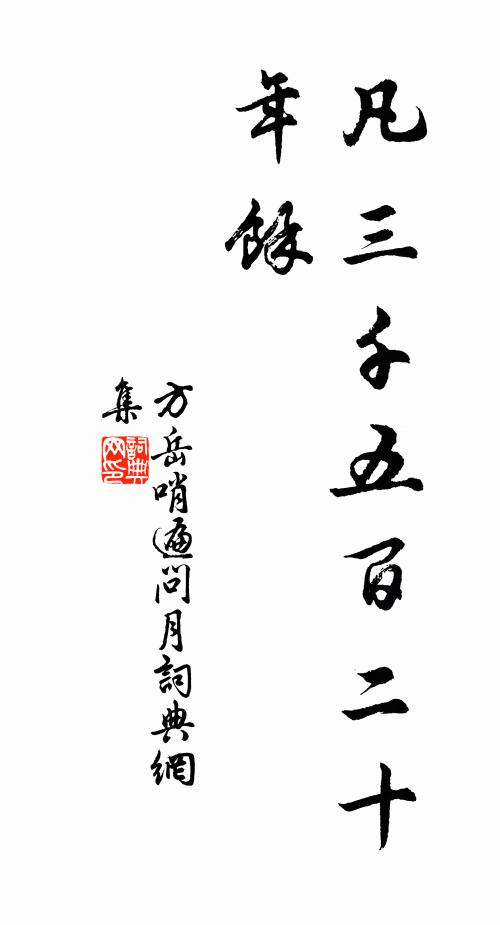 凡三千五百二十
年餘
方岳哨遍問月詞典網
集
詞典网印